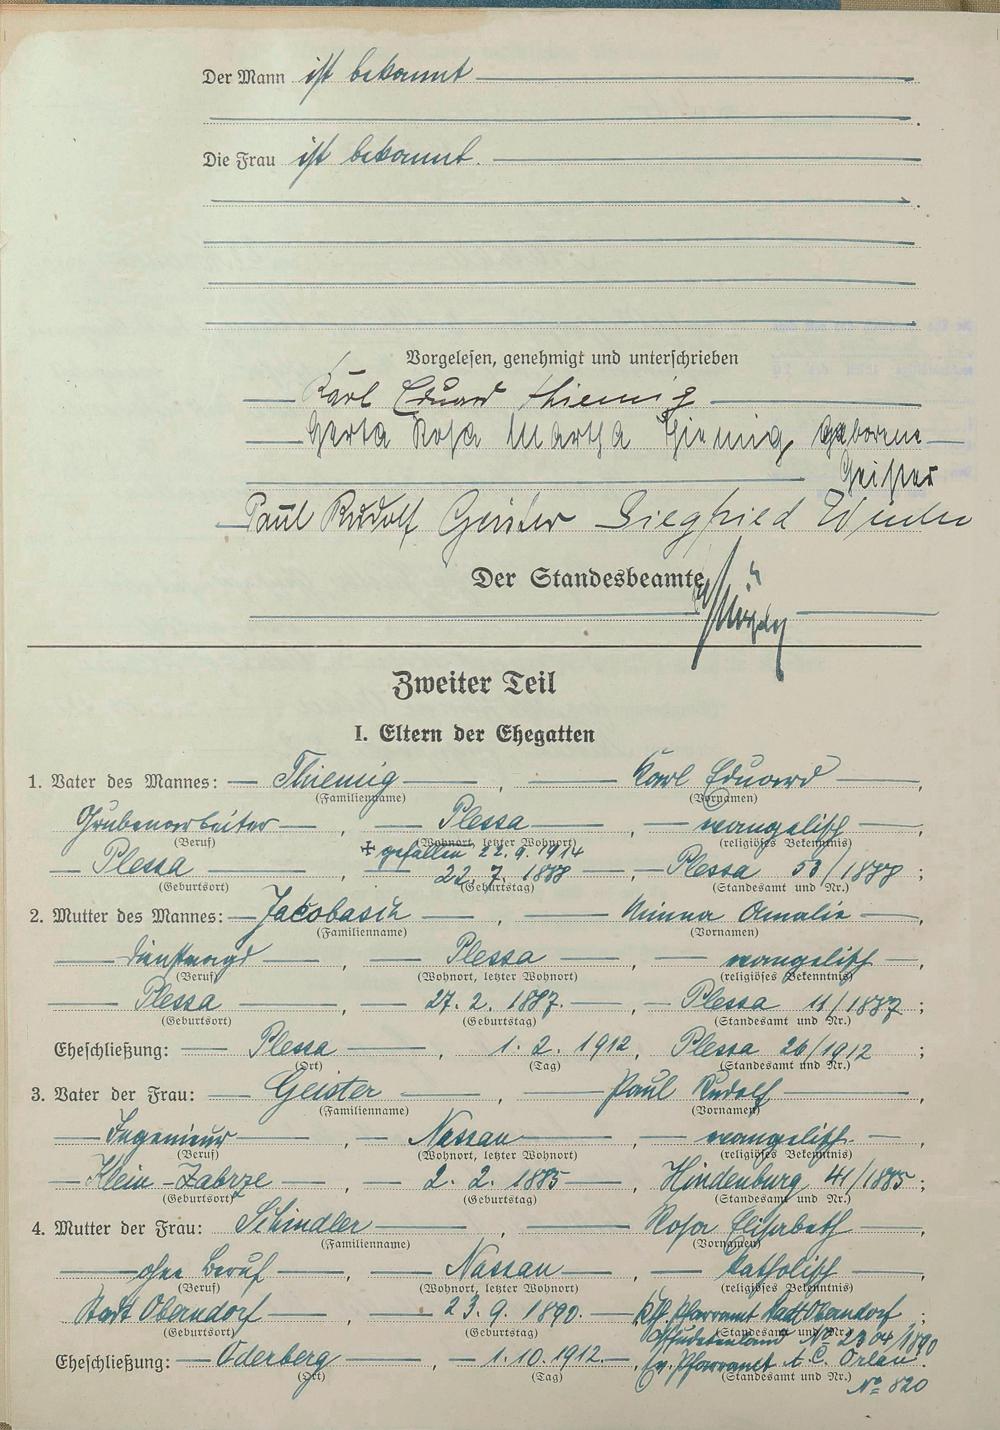 Der Mann ist bekannt
Die Frau ist bekannt.
Vorgelesen, genehmigt und unterschrieben
Karl Eduard Thiemig
Gerta Rosa Martha Thiemig, geborene
Geister
Paul Rudolf Geister Siegfried
Der Standesbeamte
Zweiter Teil
I. Eltern der Ehegatten
1. Vater des Mannes: Thiemig, Karl Eduard,
(Familienname) (Vornamen)
Grubenarbeiter, Plessa, evangelisch
(Beruf) (Wohnort, letzter Wohnort) (religiöses Bekenntnis)
✠ gefallen 22.9.1914
Plessa, 22.7.1888, Plessa 53/1888;
(Geburtsort) (Geburtstag) (Standesamt und Nr.)
2. Mutter des Mannes: Jacobasch, Minna Amalie,
(Familienname) (Vornamen)
Dienstmagd, Plessa, evangelisch,
(Beruf) (Wohnort, letzter Wohnort) (religiöses Bekenntnis)
Plessa, 27.2.1887., Plessa 11/1887;
(Geburtsort) (Geburtstag) (Standesamt und Nr.)
Eheschließung: Plessa, 1.2.1912, Plessa 26/1912;
(Ort) (Tag) (Standesamt und Nr.)
3. Vater der Frau: Geister, Paul Rudolf,
(Familienname) (Vornamen)
Ingenieur, Nassau, evangelisch.,
(Beruf) (Wohnort, letzter Wohnort) (religiöses Bekenntnis)
Klein-Zabrze, 2.2.1885, Hindenburg 41/1885;
(Geburtsort) (Geburtstag) (Standesamt und Nr.)
4. Mutter der Frau: Schindler, Rosa Elisabeth,
(Familienname) (Vornamen)
ohne Beruf, Nassau, katholisch,
(Beruf) (Wohnort, letzter Wohnort) (religiöses Bekenntnis)
Stadt Oberndorf, 23.9.1890. Pfarramt Stadt Oberndorf;
(Geburtsort) (Geburtstag) (Standesamt und Nr.)
No 2304/1890
Eheschließung: Oderberg, 1.10.1912., Ev. Pfarramt A.C. Orlau.
(Ort) (Tag) (Standesamt und Nr.)
No 820